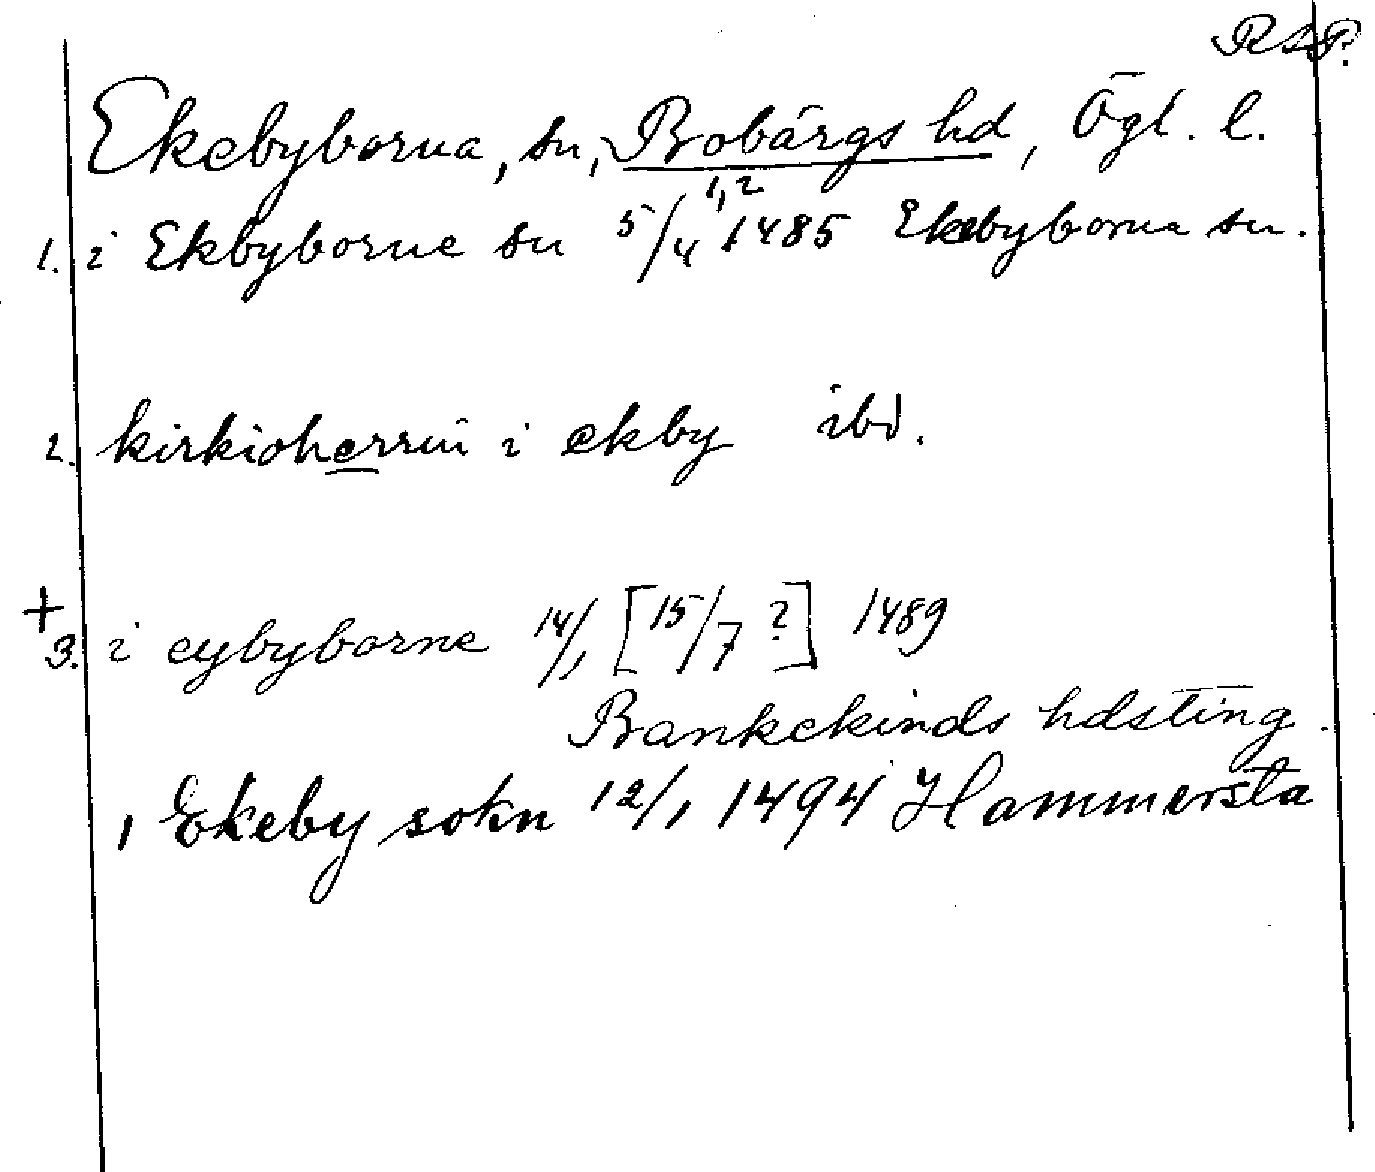 RAP.
Ekebyborna, sn, Bobärgs hd, Ögl. l.
1. i Ekbyborne sn 5/4 1,2 1485 Ekebyborna sn.
2. kirkioherrin i ekby ibd.
+ 3. i eybyborne 14/1 [15/7 ?] 1489
Bankekinds hdsting.
, Ekeby sokn 12/1 1494 Hammersta